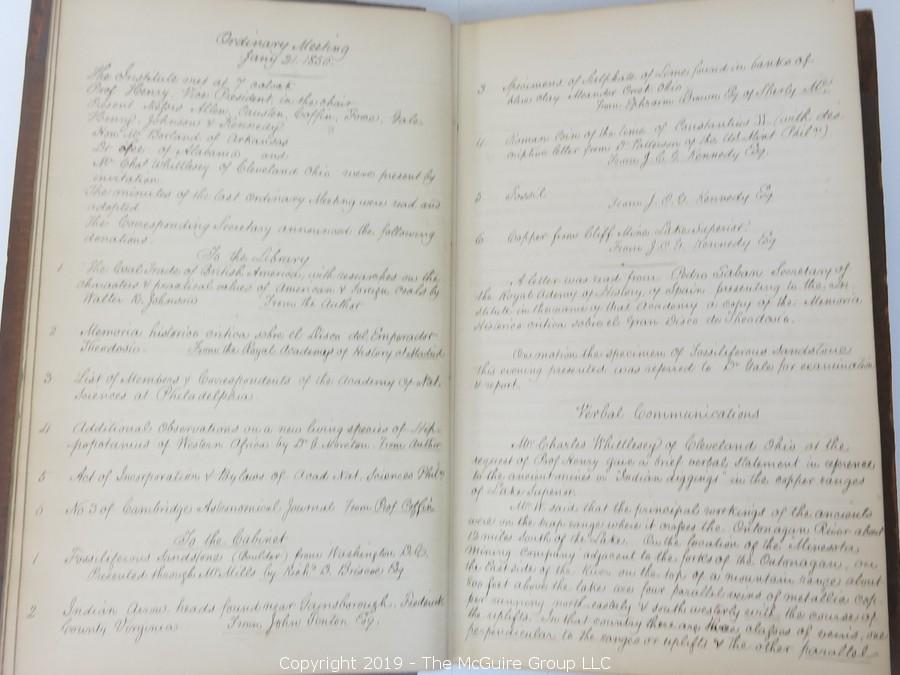 Ordinary Meeting
Jany 21. 1850.
The Institute met at 7 oclock
Prof Henry, Vice President, in the chair
Present Messrs Allen, Causten, Coffin, Force, Gale
Henry, Johnson & Kennedy
Hon Mr Borland of Arkansas
Dr of Alabama and
Mr Chas Whittlesey of Cleveland Ohio were present by
invitation
The minutes of the last Ordinary Meeting were read and
adopted
The Corresponding Secretary announced the following
donations.
To the Library
1 The Coal Trade of British America, with researches on the
characters & practical values of American & Foreign Coals by
Walter R. Johnson From the Author
2 Memoria historico critica sobre el Disco del Emperador
Theodosio. From the Royal Academy of History of Madrid
3 List of Members & Correspondents of the Academy of Nat.
Sciences at Philadelphia
4 Additional Observations on a new living species of Hip-
popotamus of Western Africa by Dr G Morton. From Author
5 Act of Incorporation & Bylaws of Acad Nat. Sciences Phila
6 No 3 of Cambridge Astronomical Journal From Prof Coffin
To the Cabinet
1 Fossiliferous Sandstone (Boulder) from Washington D.C.
Presented through Mr Mills by Richd B. Briscoe Esq
2 Indian Arrow heads found near Gainsborough, Frederick
County Virginia From John Esq.
3 Specimens of Sulphate of Lime, found in banks of
blue clay Meander Creek Ohio
From Ephraim Brown Esq of
4 Roman Coin of the time of Constantius II (with des
criptive letter from Dr Patterson of the U.S. Mint Phila)
From J. C. G. Kennedy Esq.
5 Fossil
From J. C. G. Kennedy Esq
6 Copper from Cliff Mine, Lake Superior.
From J. C. G. Kennedy Esq
A letter was read from Pedro Sabau Secretary of
the Royal Ademy of History, of Spain presenting to the In-
stitute in the name of that Academy a copy of the Memoria
Historico critica sobre el Gran Disco de Theodosio.
On motion the specimen of Fossiliferous Sandstone
this evening presented was referred to Dr Gale for examination
& report.
Verbal Communications
Mr Charles Whittlesey of Cleveland Ohio at the
request of Prof Henry gave a brief verbal statement in reference
to the ancient mines or "Indian diggings" in the copper ranges
of Lake Superior.
Mr W. said that the principal workings of the ancients
were on the trap range where it crosses the Ontonagan River about
12 miles South of the Lake. On the location of the "Minesota
Mining Company" adjacent to the forks of the Ontonagan, on
the East side of the River on the top of a mountain range about
800 feet above the lake are four parallel veins of metallic cop
per running north easterly & south westerly with the courses of
the uplifts. In that country there are three classes of veins, one
perpendicular to the ranges or uplifts & the other parallel
Copyright 2019 - The McGuire Group LLC